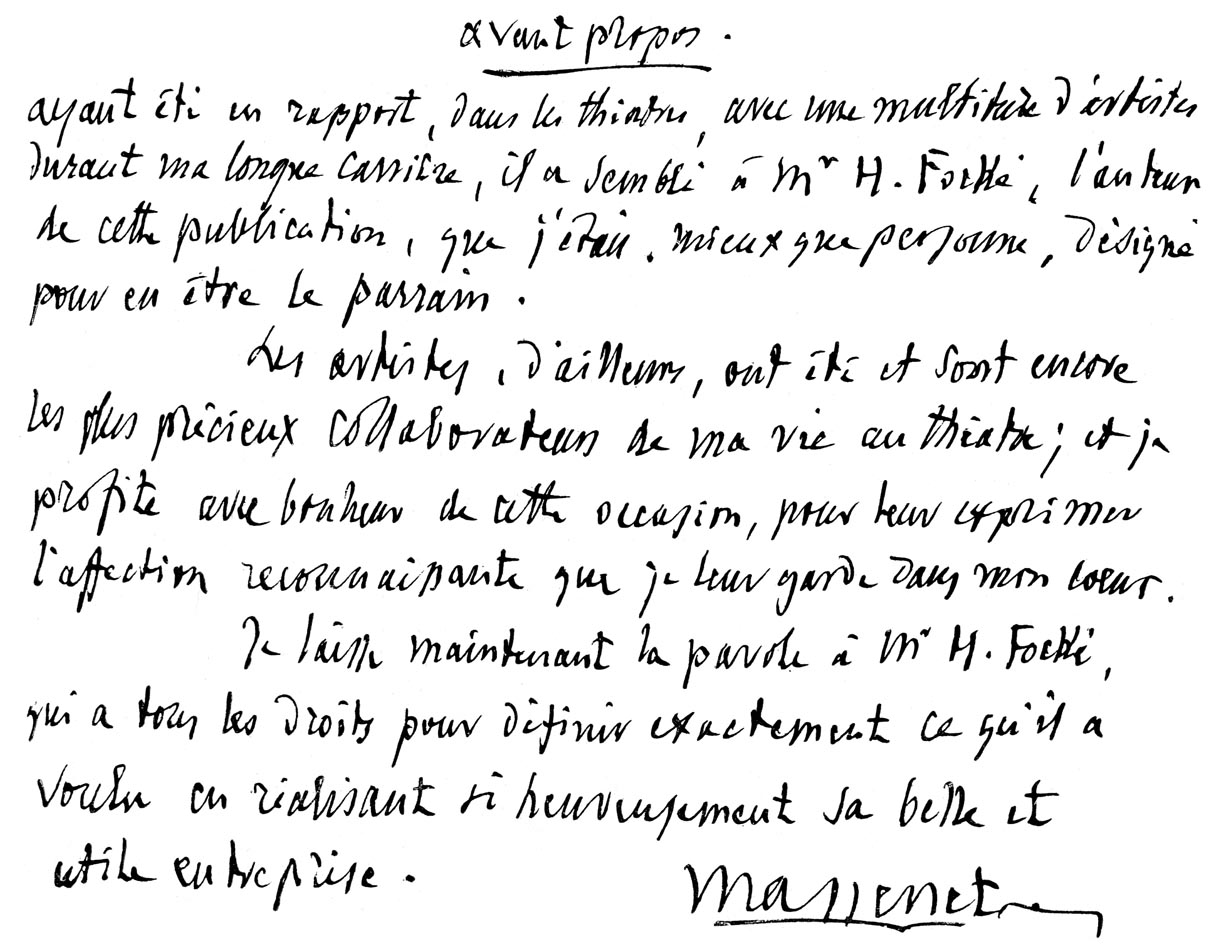 avant propos.
ayant été en rapport, dans les théâtres, avec une multitude d'artistes
durant ma longue carrière, il a semblé à Mr H. Fockké, l'auteur
de cette publication, que j'étais, mieux que personne, désigné
pour en être le parrain.
Les artistes, d'ailleurs, ont été et sont encore
les plus précieux collaborateurs de ma vie au théâtre; et je
profite avec bonheur de cette occasion, pour leur exprimer
l'affection reconnaissante que je leur garde dans mon coeur.
Je laisse maintenant la parole à Mr H.
qui a tous les droits pour définir exactement ce qu'il a
voulu en réalisant si heureusement sa belle et
utile entreprise.
Massenet